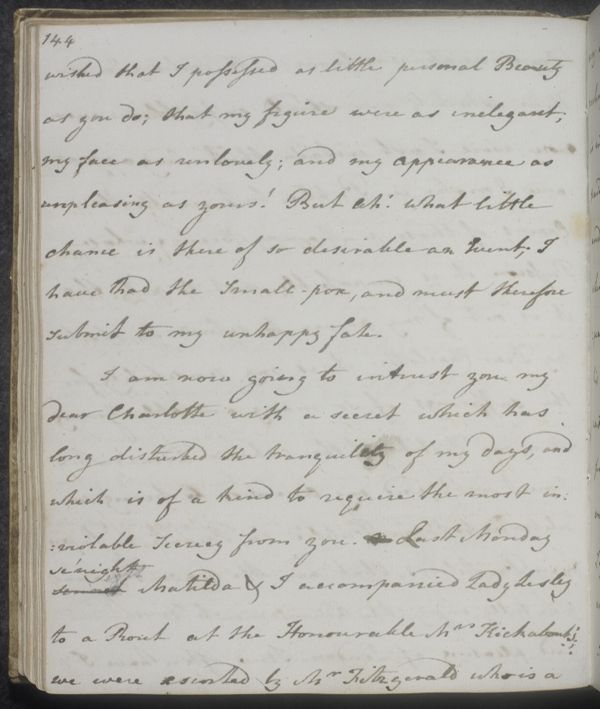 144
wished that I possessed as little personal Beauty
as you do; that my figure were as inelegant;
my face as unlovely; and my appearance as
unpleasing as yours! But ah! what little
chance is there of so desirable an Event; I
have had the Small-pox, and must therefore
submit to my unhappy fate.
I am now going to intrust you my
dear Charlotte with a secret which has
long disturbed the tranquility of my days, and
which is of a kind to require the most in:
:violable Secrecy from you. Last Monday
se'night
Matilda & I accompanied Lady Lesley
to a Rout at the Honourable Mrs Kickabout's;
we were escorted by Mr Fitzgerald who is a